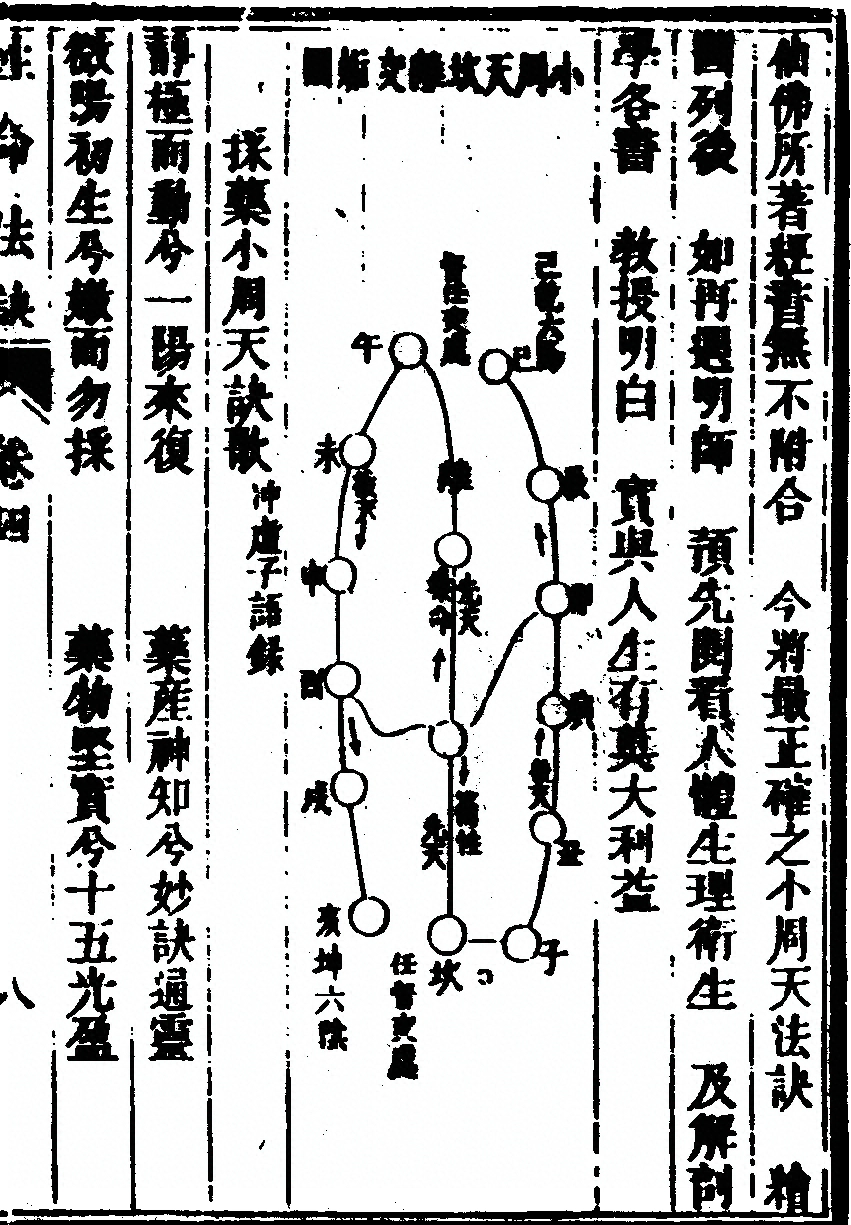 仙佛所著經書無不附合　今將最正確之小周天法訣　繪
圖列後　如再遇明師　預先閱看人體生理衛生　及解剖
學各書　教授明白　實與人生有莫大利益
小周天坎離交姤圖
己乾六陽
督任交處
午
巳
未
辰
後天
離
申
卯
先天
命
酉
寅
後天
先天
性
戌
丑
子
坎
亥坤六陰
任督交處
採藥小周天訣歌
冲虛子語錄
靜極而動兮一陽來復　藥產神知兮妙訣通靈
微陽初生兮嫩而勿採　藥物堅實兮十五光盈
性命法訣
卷四
八